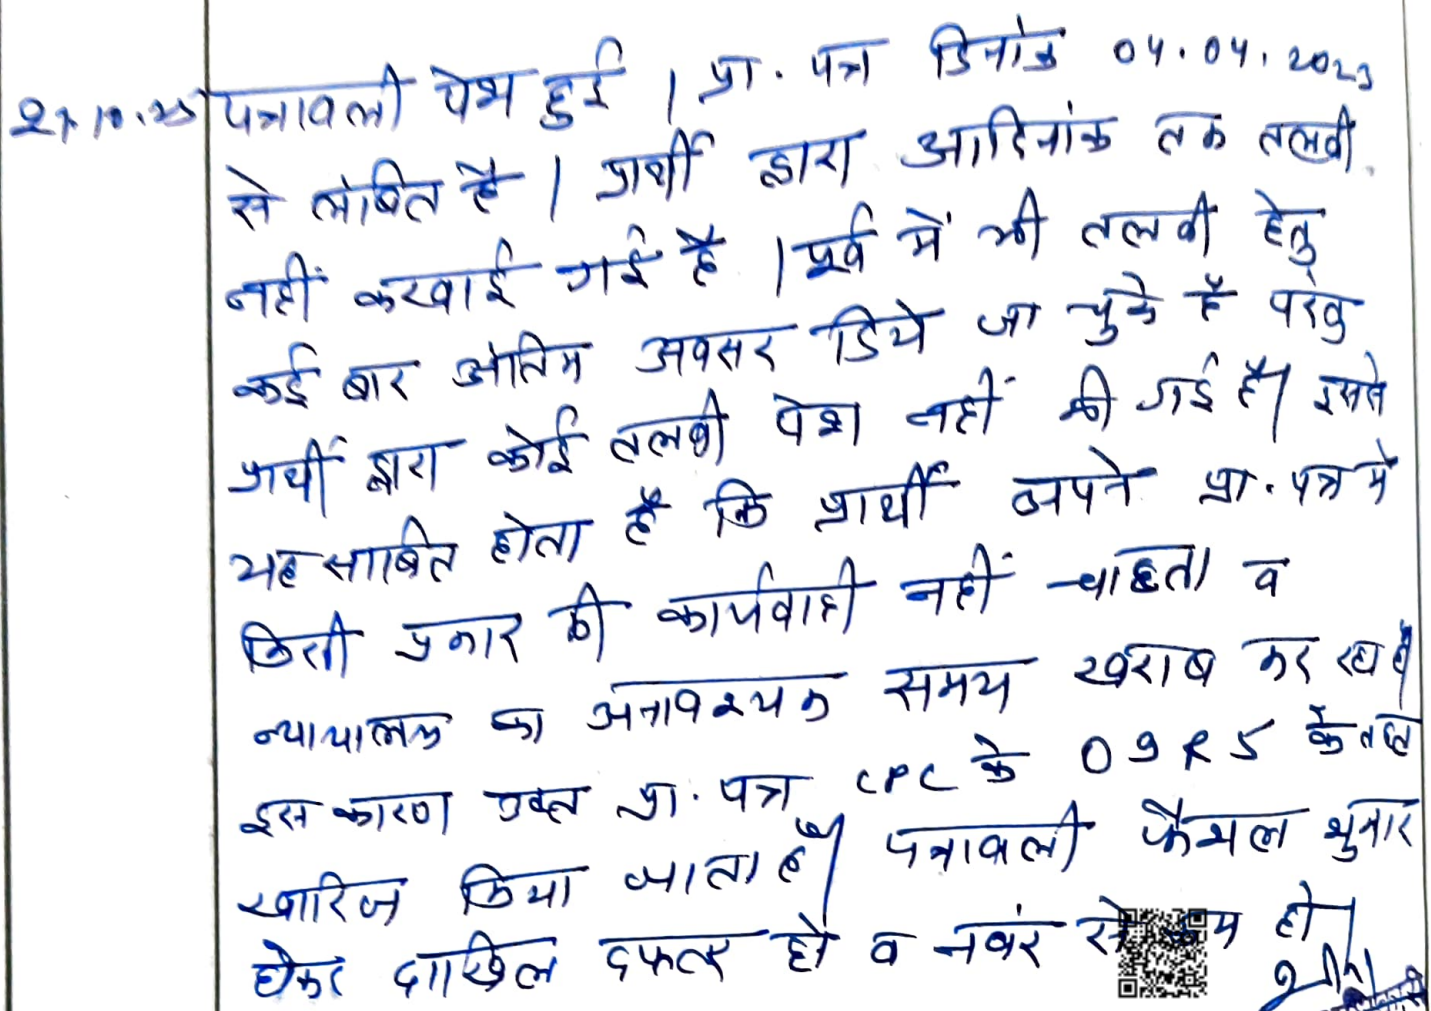 27.10.25 पत्रावली पेश हुई । प्रा. पत्र दिनांक 04.04.2023
से लंबित है । प्रार्थी द्वारा आदिनांक तक तलबी
नहीं करवाई गई है । पूर्व में भी तलबी हेतु
कई बार अंतिम अवसर दिये जा चुके है परंतु
प्रार्थी द्वारा कोई तलबी पेश नहीं की गई है। इससे
यह साबित होता है कि प्रार्थी अपने प्रा. पत्र में
किसी प्रकार की कार्यवाही नहीं चाहता व
न्यायालय का अनावश्यक समय खराब कर रहा है
इस कारण उक्त प्रा. पत्र CPC के O 9 R 5 के तहत
खारिज किया जाता है। पत्रावली फैसल शुमार
होकर दाखिल दफ्तर हो व नंबर से कम हो।